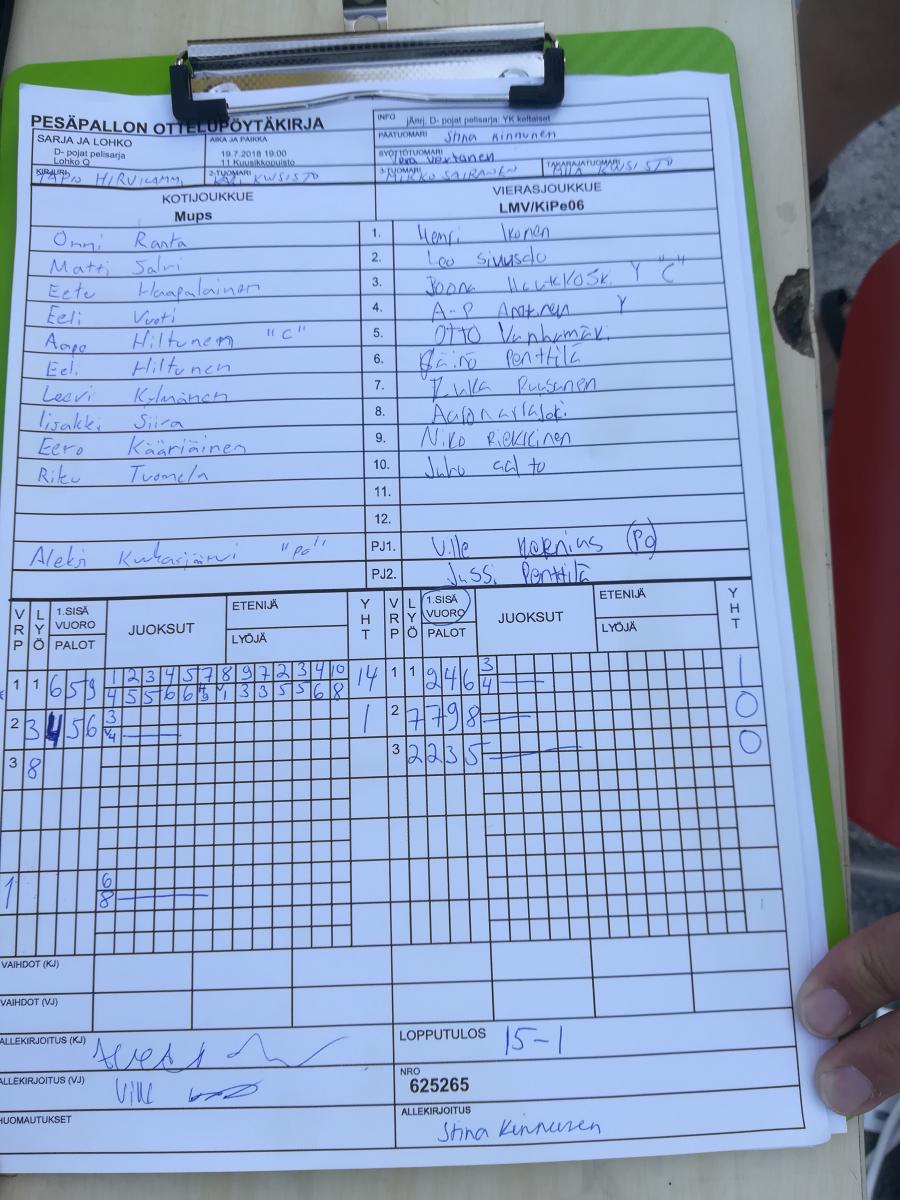 PESÄPALLON OTTELUPÖYTÄKIRJA
INFO jÄrrj. D- pojat pelisarja: YK keltaiset
SARJA JA LOHKO
D- pojat pelisarja
Lohko Q
AIKA JA PAIKKA
19.7.2018 19:00
11 Kuusikkopuisto
PÄÄTUOMARI Stina Kinnunen
SYÖTTÖTUOMARI Vertanen
KIRJURI TAPIO HIRVIKAMM,
2-TUOMARI KARI KUUSISTO
3-TUOMARI MIKKO SAIRANEN
TAKARAJATUOMARI MIIA KUUSISTO
KOTIJOUKKUE
Mups
VIERASJOUKKUE
LMV/KiPe06
Onni Ranta 1. Henri Ikonen
Matti Salvi 2. Leo Sivusuo
Eetu Haapalainen 3. Joona Y "C"
Eeli Vuoti 4. A-P Y
Aapo Hiltunen "C" 5. OTTO Vanhamäki
Eeli Hiltunen 6. Penttilä
Leevi Kylmänen 7. Ruusunen
Iisakki Siira 8.
Eero Kääriäinen 9. Niko Riekkinen
Riku Tuomela 10. Juho aalto
11.
12.
Aleksi "Po" PJ1. Ville (Po)
PJ2. Jussi Penttilä
VRP LYÖ 1.SISÄ VUORO PALOT JUOKSUT ETENIJÄ LYÖJÄ YHT VRP LYÖ 1.SISÄ VUORO PALOT JUOKSUT ETENIJÄ LYÖJÄ YHT
1 1 6 5 9 1 2 3 4 5 7 8 9 7 2 3 4 10 14 1 1 2 4 6 3 1
4 5 5 6 6 1 3 3 5 5 6 8 4
2 3 4 5 6 3 1 2 7 7 9 8 0
4
3 8 3 2 2 3 5 0
1 6
8
VAIHDOT (KJ)
VAIHDOT (VJ)
ALLEKIRJOITUS (KJ)
LOPPUTULOS 15-1
ALLEKIRJOITUS (VJ) Ville
NRO
625265
HUOMAUTUKSET
ALLEKIRJOITUS
Stina Kinnunen